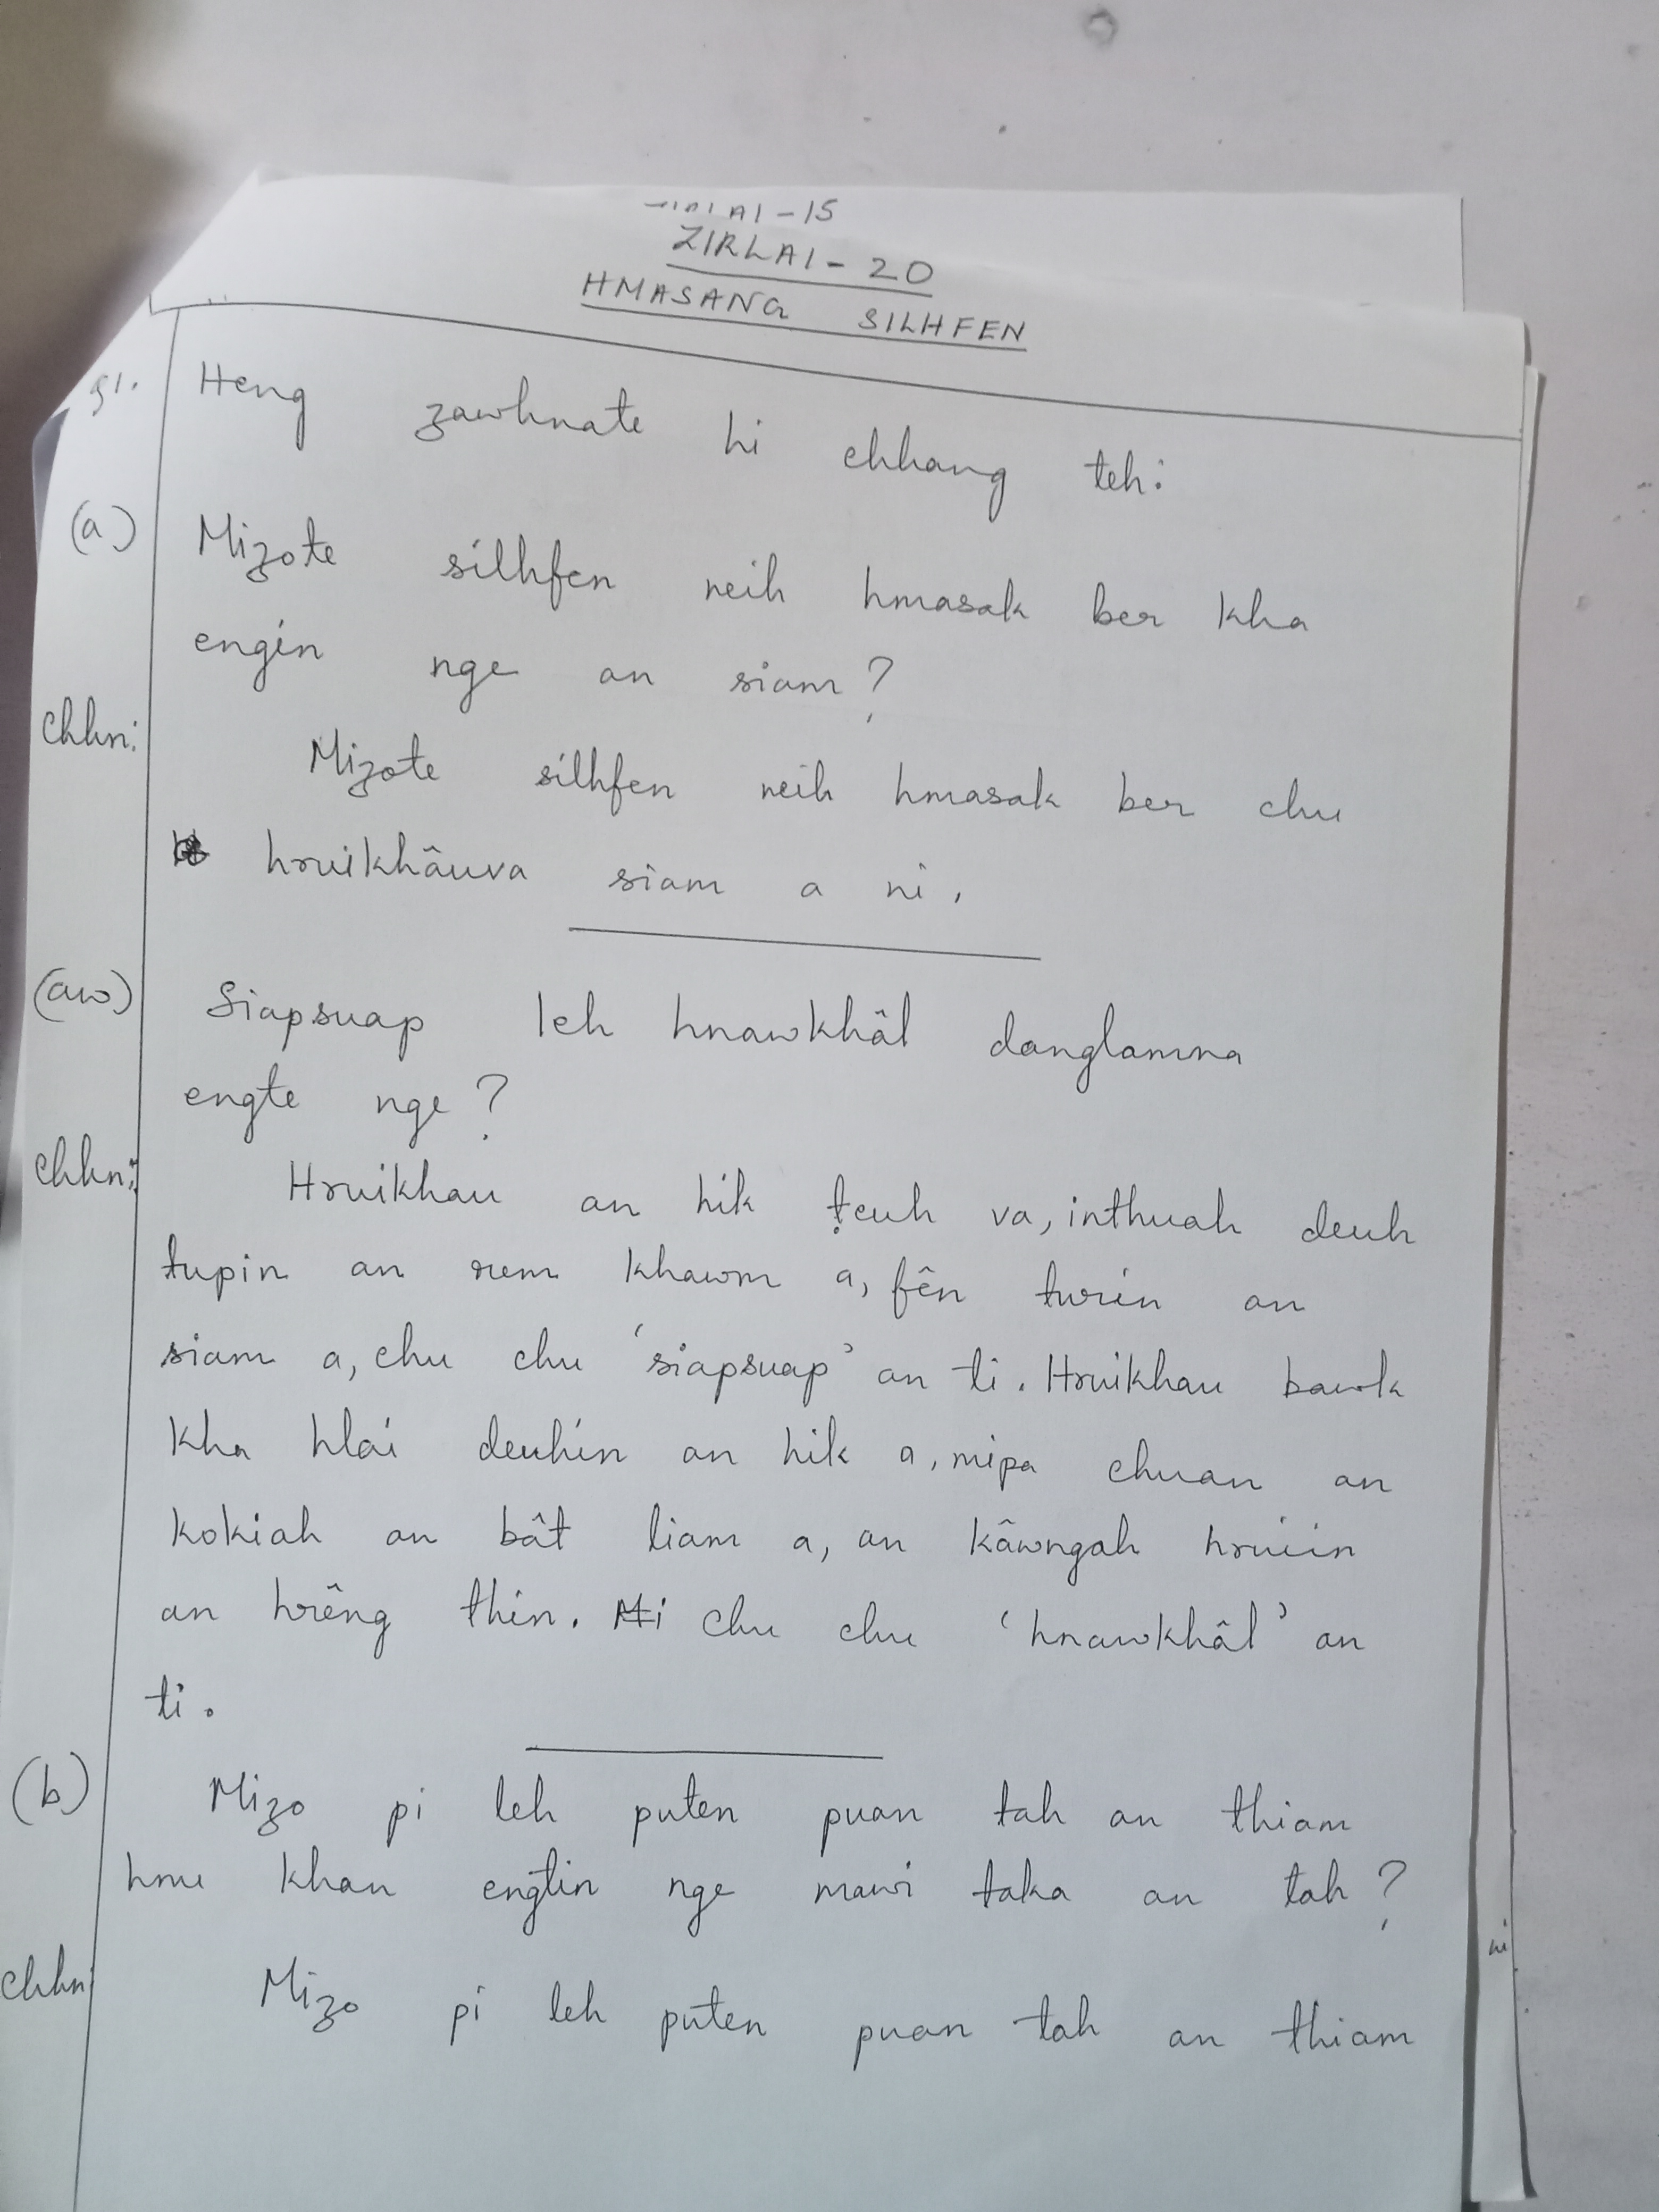 AI-15
ZIRLAI-20
HMASANG SILHFEN
Heng zawhnate hi chhang teh:
(a) Mizote silhfen neih hmasak ber kha
engin nge an siam?
Chhn: Mizote silhfen neih hmasak ber chu
hruikhâuva siam a ni.
(aw) Siapsuap leh hnawkhâl danglamna
engte nge?
Chhn: Hruikhau an hik ṭeuh va, inthuah deuh
tupin an rem khawm a, fên turin an
siam a, chu chu 'siapsuap' an ti. Hruikhau bawk
kha hlai deuhin an hik a, mipa chuan an
kokiah an bât liam a, an kâwngah hruiin
an hrêng thin. Chu chu 'hnawkhâl' an
ti.
(b) Mizo pi leh puten puan tah an thiam
hnu khan engtin nge mawi taka an tah?
Chhn: Mizo pi leh puten puan tah an thiam